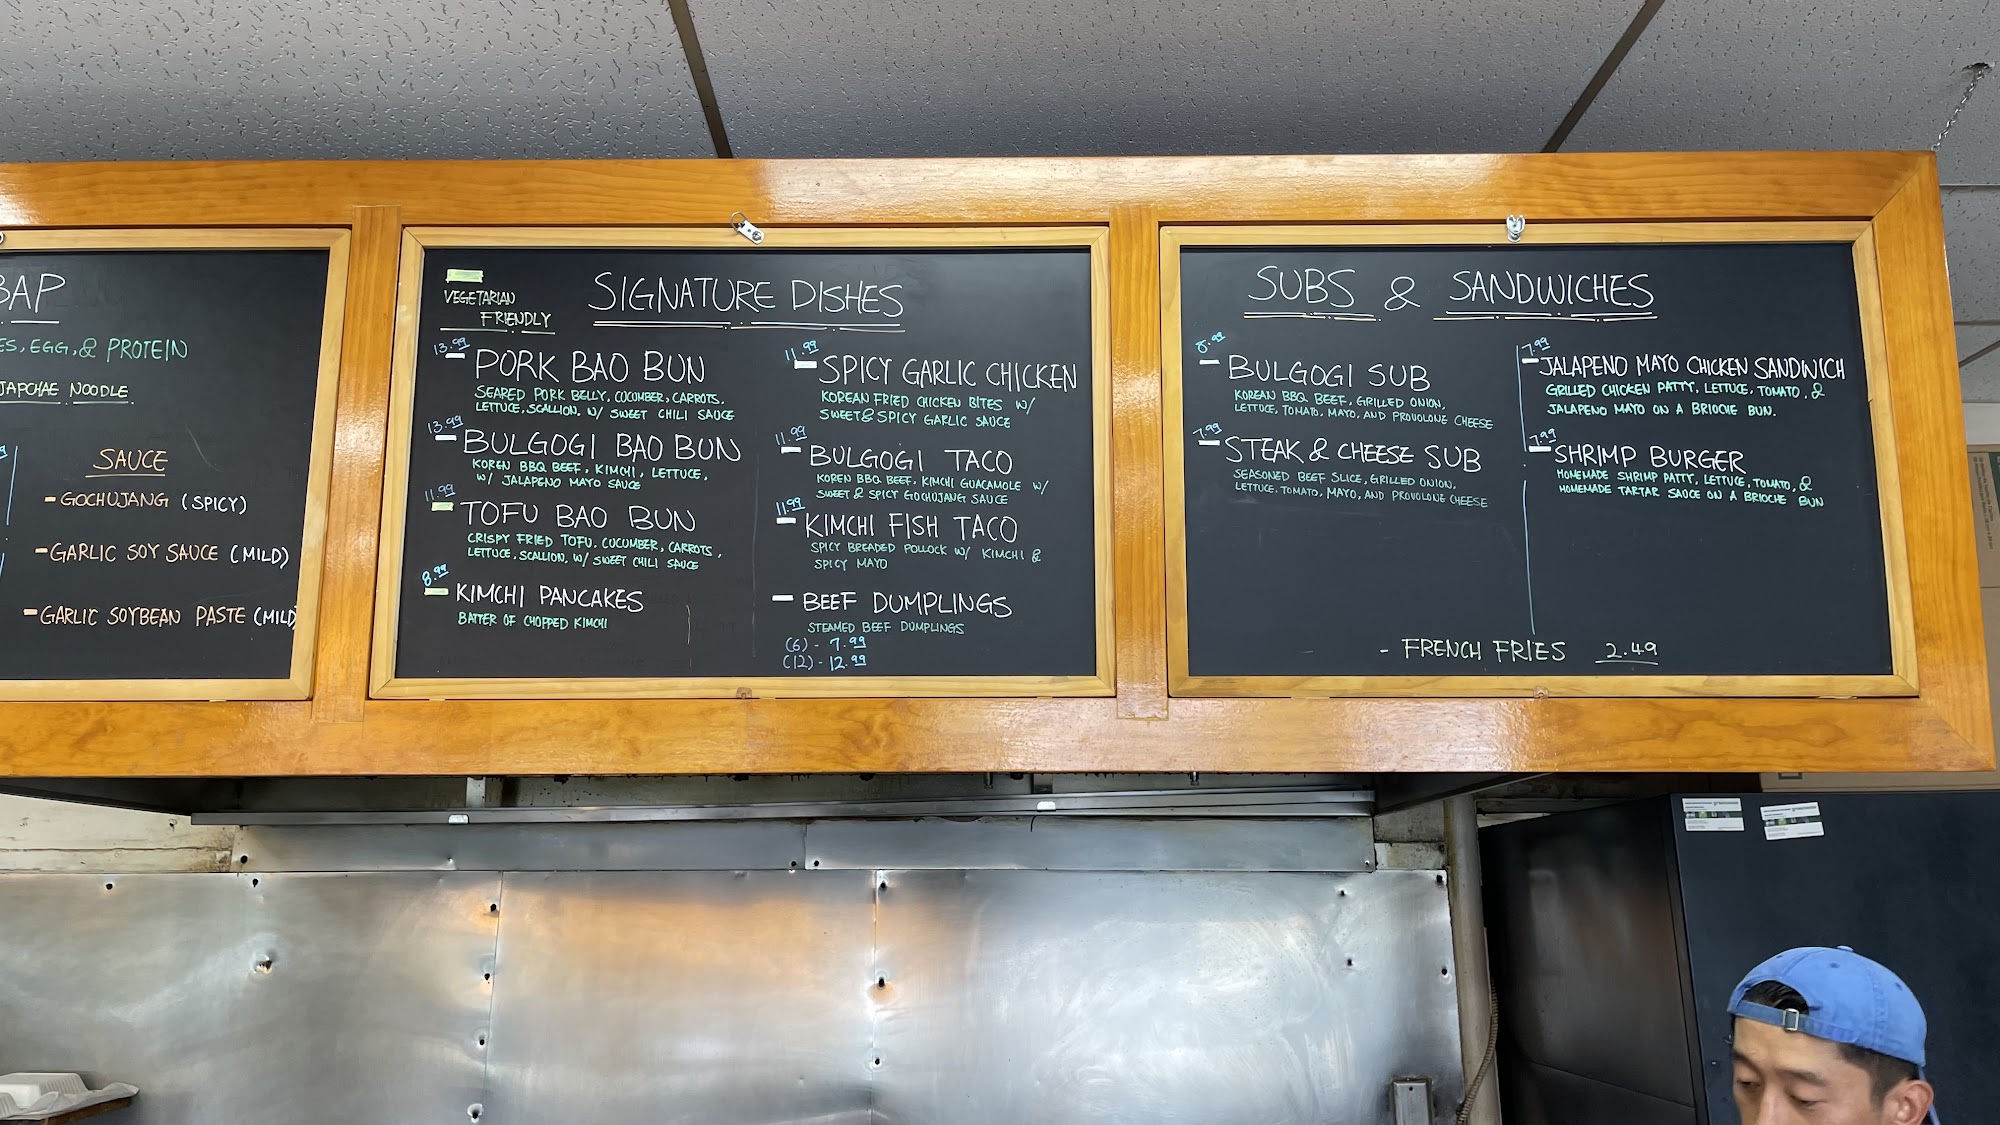 BAP
ES, EGG, & PROTEIN
JAPCHAE NOODLE
SAUCE
- GOCHUJANG (SPICY)
- GARLIC SOY SAUCE (MILD)
- GARLIC SOYBEAN PASTE (MILD)
VEGETARIAN
FRIENDLY
SIGNATURE DISHES
13.99
- PORK BAO BUN
SEARED PORK BELLY, CUCUMBER, CARROTS,
LETTUCE, SCALLION, W/ SWEET CHILI SAUCE
13.99
- BULGOGI BAO BUN
KOREN BBQ BEEF, KIMCHI, LETTUCE,
W/ JALAPENO MAYO SAUCE
11.99
- TOFU BAO BUN
CRISPY FRIED TOFU, CUCUMBER, CARROTS,
LETTUCE, SCALLION, W/ SWEET CHILI SAUCE
8.99
- KIMCHI PANCAKES
BATTER OF CHOPPED KIMCHI
11.99
- SPICY GARLIC CHICKEN
KOREAN FRIED CHICKEN BITES W/
SWEET & SPICY GARLIC SAUCE
11.99
- BULGOGI TACO
KOREN BBQ BEEF, KIMCHI GUACAMOLE W/
SWEET & SPICY GOCHUJANG SAUCE
11.99
- KIMCHI FISH TACO
SPICY BREADED POLLOCK W/ KIMCHI &
SPICY MAYO
- BEEF DUMPLINGS
STEAMED BEEF DUMPLINGS
(6) - 7.99
(12) - 12.99
SUBS & SANDWICHES
8.99
- BULGOGI SUB
KOREAN BBQ BEEF, GRILLED ONION,
LETTUCE, TOMATO, MAYO, AND PROVOLONE CHEESE
7.99
- STEAK & CHEESE SUB
SEASONED BEEF SLICE, GRILLED ONION,
LETTUCE, TOMATO, MAYO, AND PROVOLONE CHEESE
7.99
- JALAPENO MAYO CHICKEN SANDWICH
GRILLED CHICKEN PATTY, LETTUCE, TOMATO, &
JALAPENO MAYO ON A BRIOCHE BUN.
7.99
- SHRIMP BURGER
HOMEMADE SHRIMP PATTY, LETTUCE, TOMATO, &
HOMEMADE TARTAR SAUCE ON A BRIOCHE BUN
- FRENCH FRIES 2.49